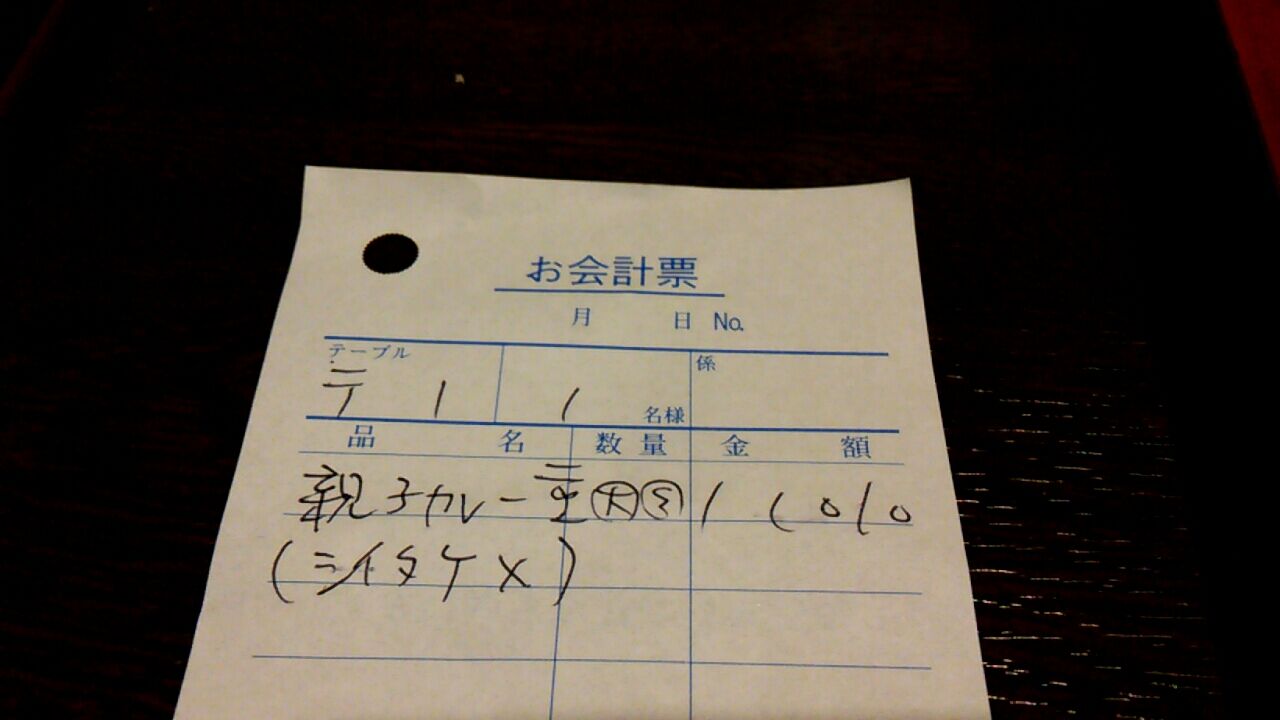 お会計票
月 日 No.
テーブル 係
テ 1 1 名様
品 名 数量 金 額
親子カレー重 大 1 1010
(シイタケ×)